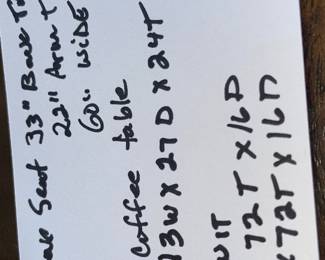 Seat 33" Back
22" Arm
60" WIDE
Coffee table
3W X 27D X 24T
72T X 16D
X 72T X 16D